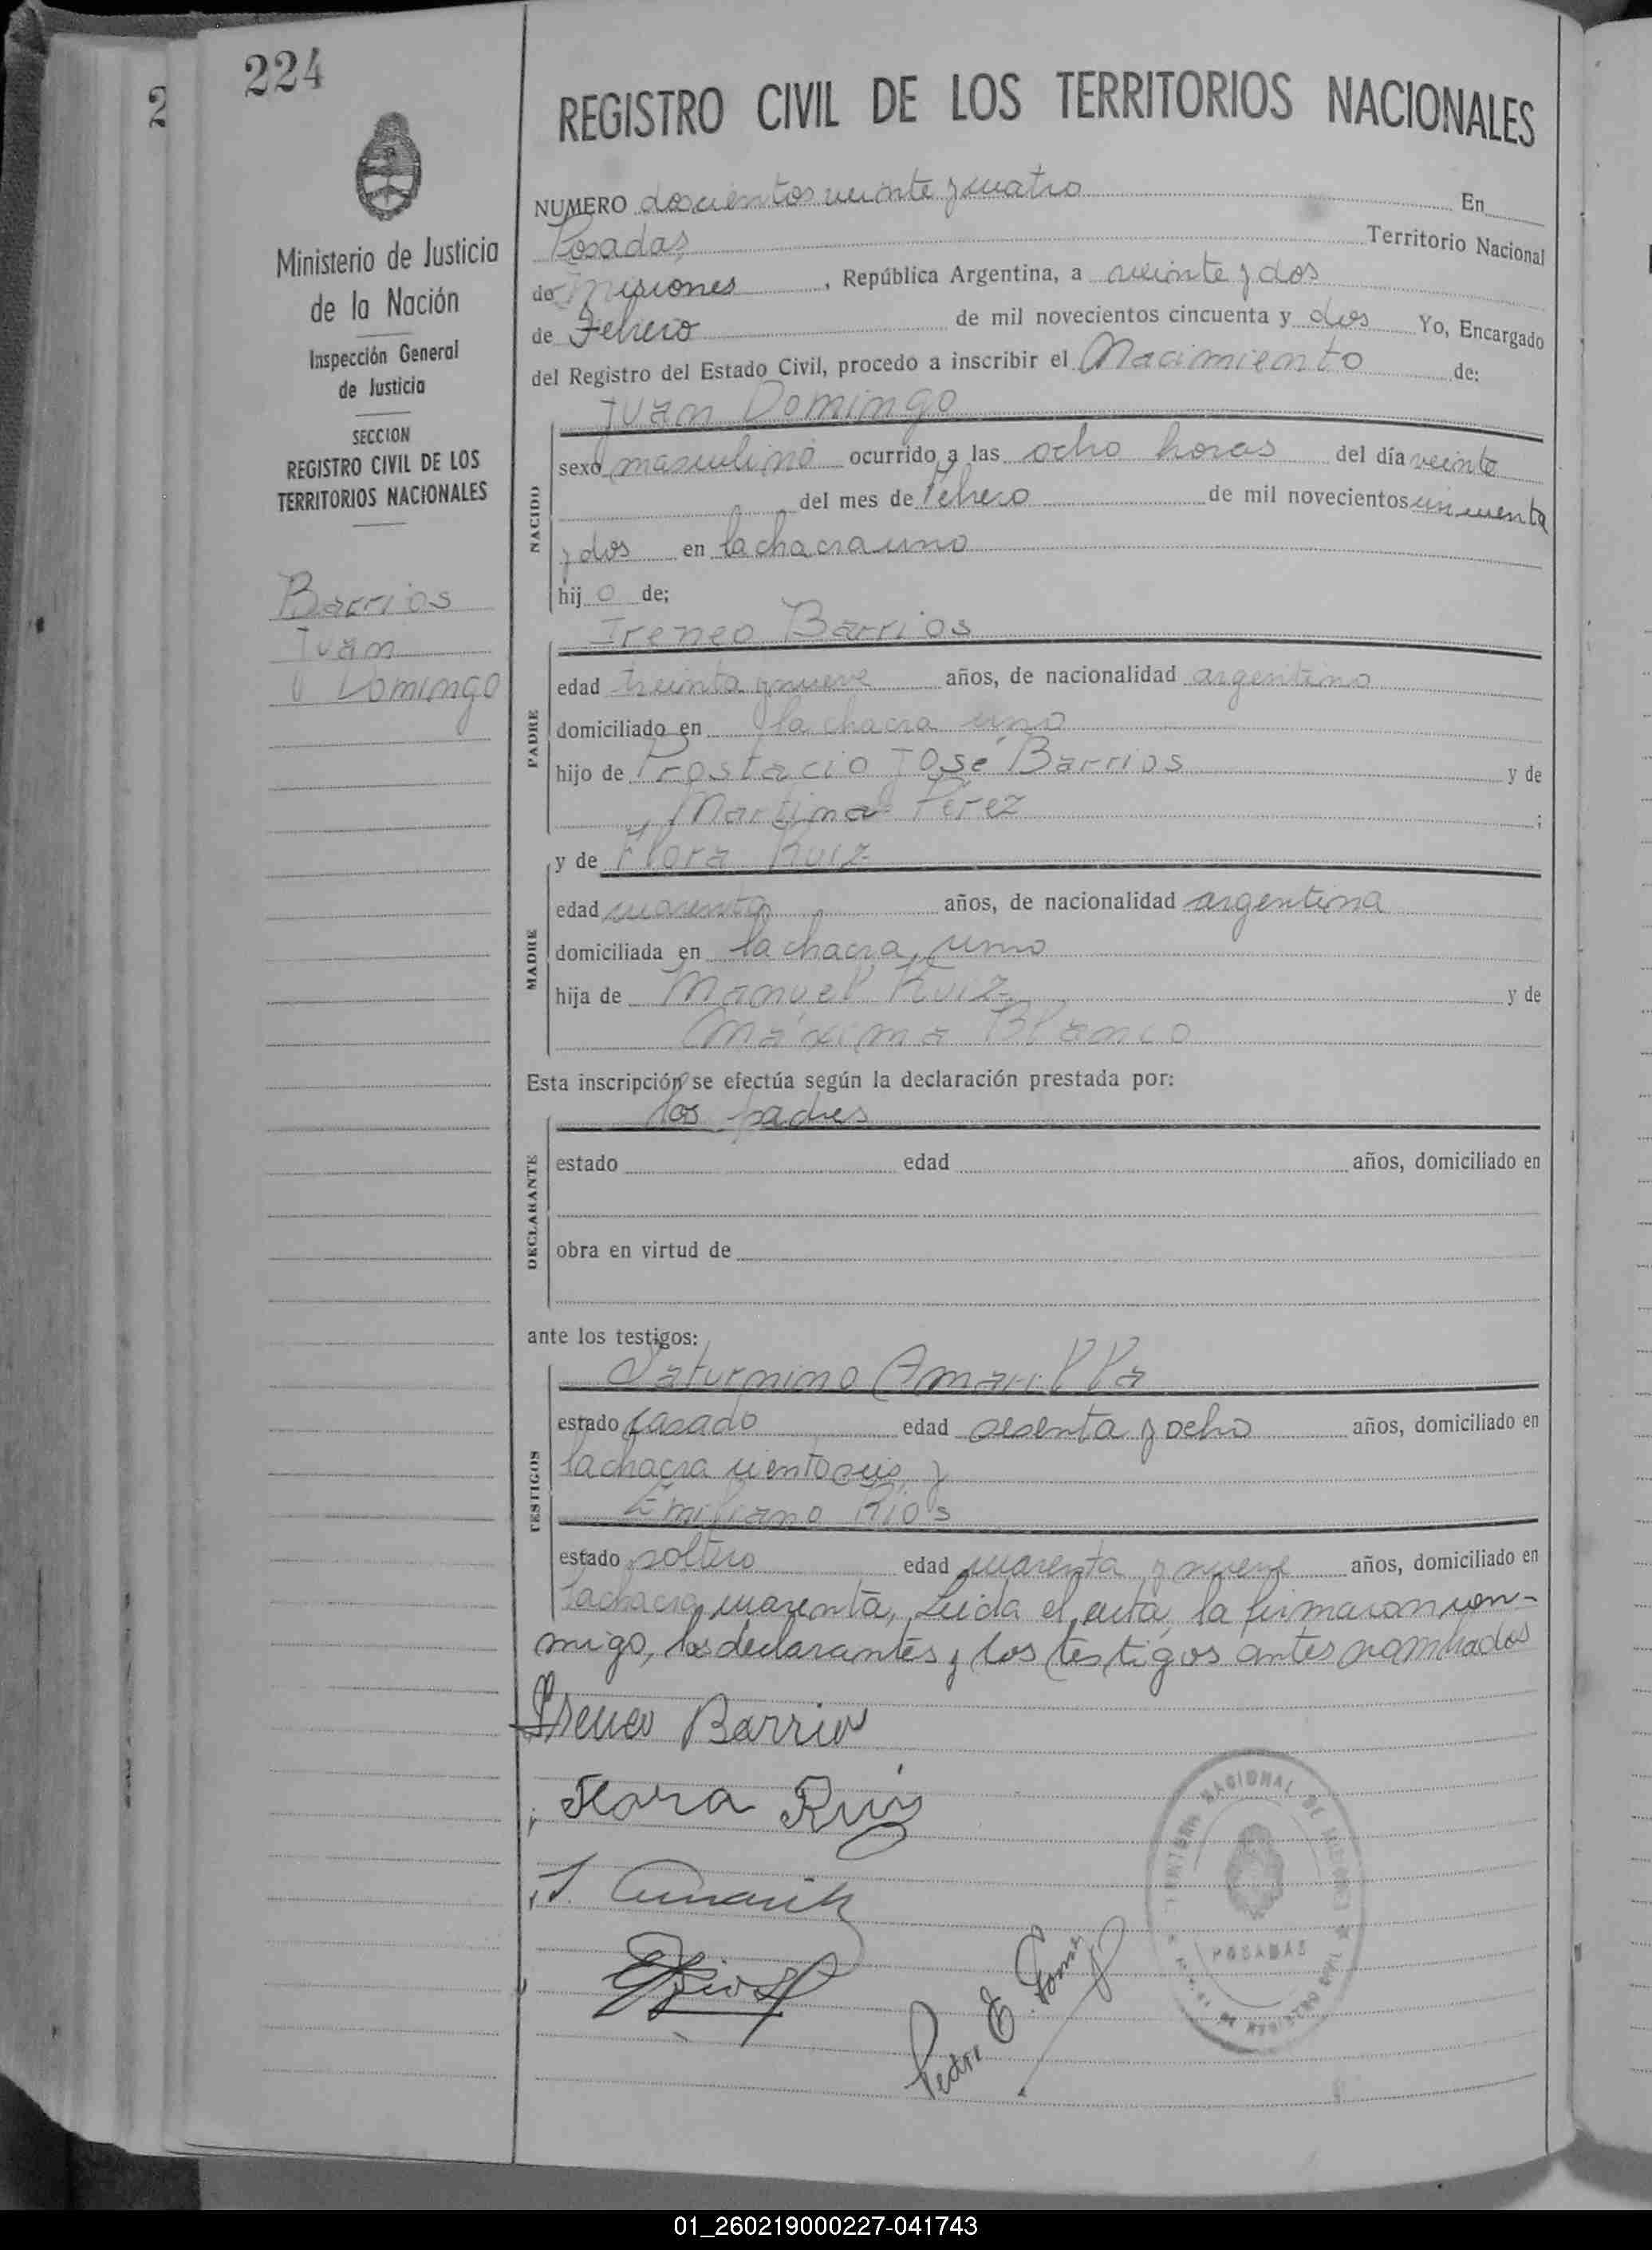 224
2
REGISTRO CIVIL DE LOS TERRITORIOS NACIONALES
Ministerio de Justicia
de la Nación
Inspección General
de Justicia
SECCION
REGISTRO CIVIL DE LOS
TERRITORIOS NACIONALES
Barrios
Juan
Domingo
NUMERO doscientos veinte y cuatro En
Posadas, Territorio Nacional
de Misiones, República Argentina, a veinte y dos
de Febrero de mil novecientos cincuenta y dos Yo, Encargado
del Registro del Estado Civil, procedo a inscribir el Nacimiento de:
Juan Domingo
NACIDO
sexo masculino ocurrido a las ocho horas del día veinte
del mes de Febrero de mil novecientos cincuenta
y dos en la chacra uno
hijo de;
Ireneo Barrios
PADRE
edad treinta y nueve años, de nacionalidad argentino
domiciliado en la chacra uno
hijo de José Barrios y de
Martina Pérez ;
y de Flora Ruiz
MADRE
edad cuarenta años, de nacionalidad argentina
domiciliada en la chacra uno
hija de Manuel Ruiz y de
Máxima Blanco
Esta inscripción se efectúa según la declaración prestada por:
los padres
DECLARANTE
estado edad años, domiciliado en
obra en virtud de
ante los testigos:
Saturnino Amarilla
TESTIGOS
estado casado edad sesenta y ocho años, domiciliado en
la chacra ciento seis y
Emiliano Ríos
estado soltero edad cuarenta y nueve años, domiciliado en
la chacra cuarenta, Leida el acta, la firmaron con-
migo, los declarantes y los testigos antes nombrados
Ireneo Barrios
Flora Ruiz
S. Amarilla
E Rios
Pedro E. Gomez
POSADAS
01_260219000227-041743